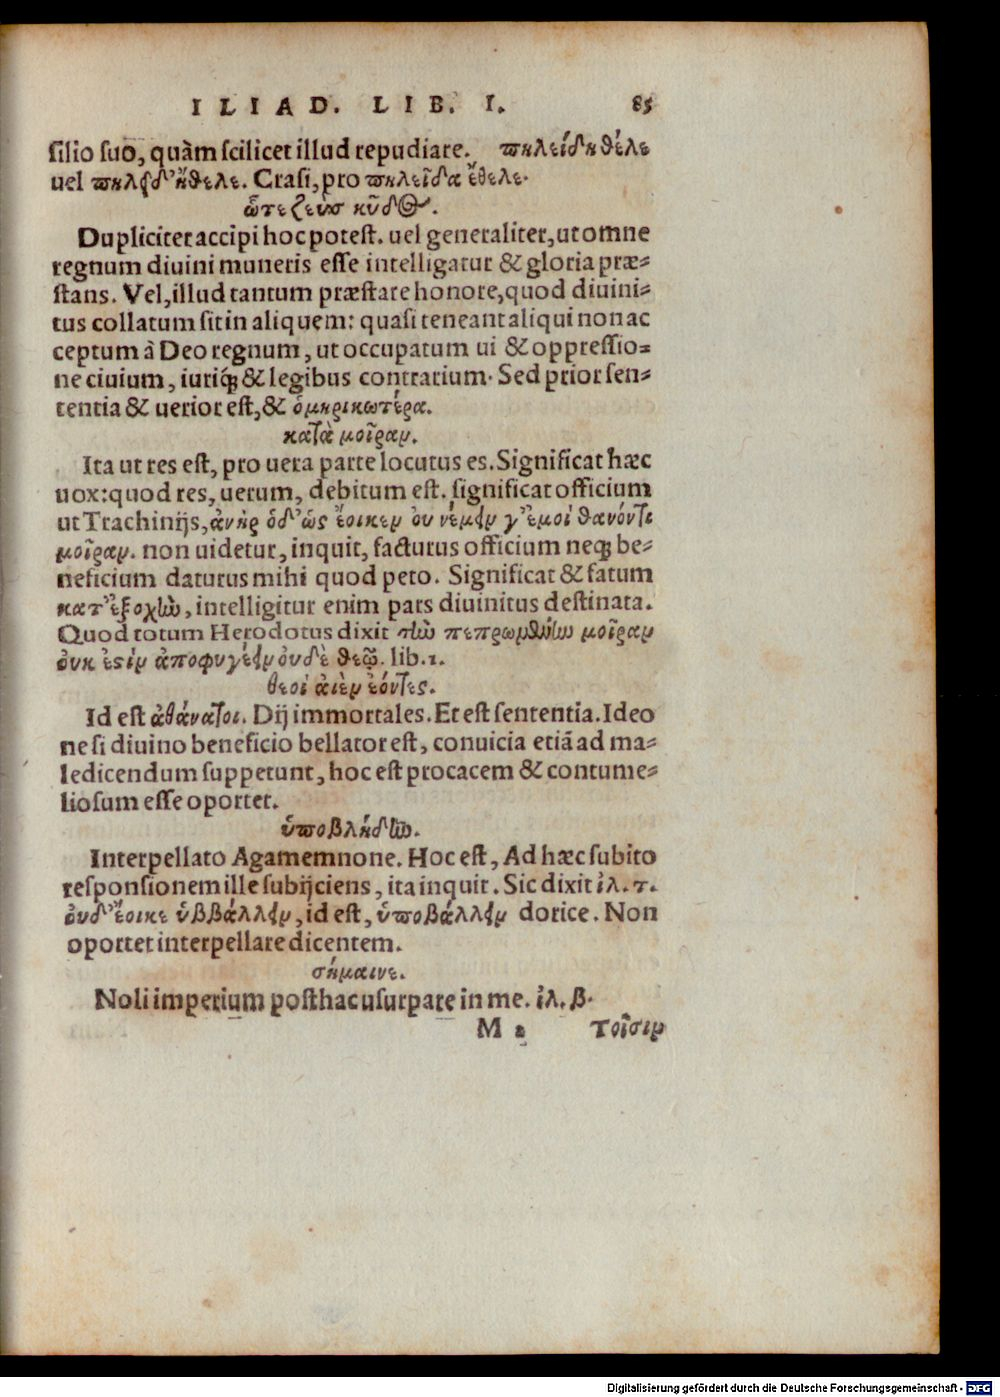 ILIAD. LIB. I. 85
silio suo, quàm scilicet illud repudiare. πηλείδηθέλε
uel πηλειδ᾽ἤθελε. Crasi, pro πηλεῖδα ἔθελε.
ὧτε ζεὺσ κῦδος.
Dupliciter accipi hoc potest. uel generaliter, ut omne
regnum diuini muneris esse intelligatur & gloria præ-
stans. Vel, illud tantum præstare honore, quod diuini-
tus collatum sit in aliquem: quasi teneant aliqui non ac
ceptum à Deo regnum, ut occupatum ui & oppressio-
ne ciuium, iuriq́; & legibus contrarium. Sed prior sen-
tentia & uerior est, & ὁμηρικωτέρα.
κατὰ μοῖραν.
Ita ut res est, pro uera parte locutus es. Significat hæc
uox: quod res, uerum, debitum est. significat officium
ut Trachinijs, ἀνὴρ ὁδ᾽ὡς ἔοικεν ου νέμειν γ᾽ἐμοὶ θανόντι
μοῖραν. non uidetur, inquit, facturus officium neq; be-
neficium daturus mihi quod peto. Significat & fatum
κατ᾽ἐξοχὴν, intelligitur enim pars diuinitus destinata.
Quod totum Herodotus dixit τὴν πεπρωμένην μοῖραν
ὀυκ ἐστὶν ἀποφυγέειν ὀυδὲ θεῷ. lib. 1.
θεοὶ ἀιὲν ἐόντες.
Id est ἀθάνατοι. Dij immortales. Et est sententia. Ideo
ne si diuino beneficio bellator est, conuicia etiā ad ma-
ledicendum suppetunt, hoc est procacem & contume-
liosum esse oportet.
ὑποβλήδην.
Interpellato Agamemnone. Hoc est, Ad hæc subito
responsionem ille subijciens, ita inquit. Sic dixit ἰλ. τ.
ὀυδ᾽ἔοικε ὑββάλλειν, id est, ὑποβάλλειν dorice. Non
oportet interpellare dicentem.
σήμαινε.
Noli imperium posthac usurpare in me. ἰλ. β.
M 2 τοῖσιν
Digitalisierung gefördert durch die Deutsche Forschungsgemeinschaft - DFG